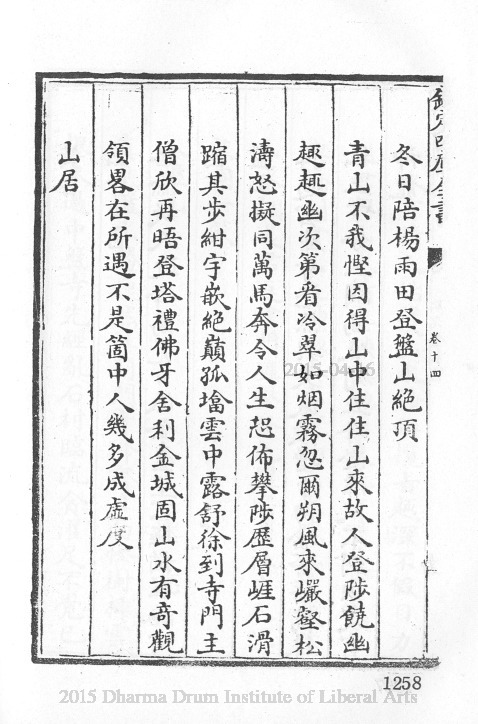 欽定四庫全書
卷十四
冬日陪楊雨田登盤山絶頂
青山不我慳因得山中住住山來故人登陟饒幽
趣趣幽次第看冷翠如烟霧忽爾朔風來巘壑松
濤怒擬同萬馬奔令人生恐佈攀陟歷層崕石滑
蹜其步紺宇嵌絶巔孤墖雲中露舒徐到寺門主
僧欣再晤登塔禮佛牙舍利金城固山水有奇觀
領畧在所遇不是箇中人幾多成虛度
山居
1258
2015 Dharma Drum Institute of Liberal Arts